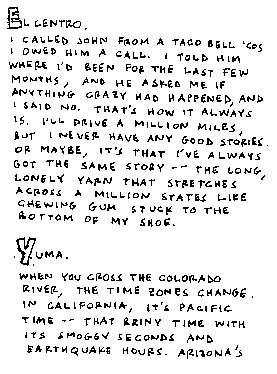 EL CENTRO.
I CALLED JOHN FROM A TACO BELL 'COS
I OWED HIM A CALL. I TOLD HIM
WHERE I'D BEEN FOR THE LAST FEW
MONTHS, AND HE ASKED ME IF
ANYTHING CRAZY HAD HAPPENED, AND
I SAID NO. THAT'S HOW IT ALWAYS
IS. I'LL DRIVE A MILLION MILES,
BUT I NEVER HAVE ANY GOOD STORIES.
OR MAYBE, IT'S THAT I'VE ALWAYS
GOT THE SAME STORY -- THE LONG,
LONELY YARN THAT STRETCHES
ACROSS A MILLION STATES LIKE
CHEWING GUM STUCK TO THE
BOTTOM OF MY SHOE.
YUMA.
WHEN YOU CROSS THE COLORADO
RIVER, THE TIME ZONES CHANGE.
IN CALIFORNIA, IT'S PACIFIC
TIME -- THAT BRINY TIME WITH
ITS SMOGGY SECONDS AND
EARTHQUAKE HOURS. ARIZONA'S